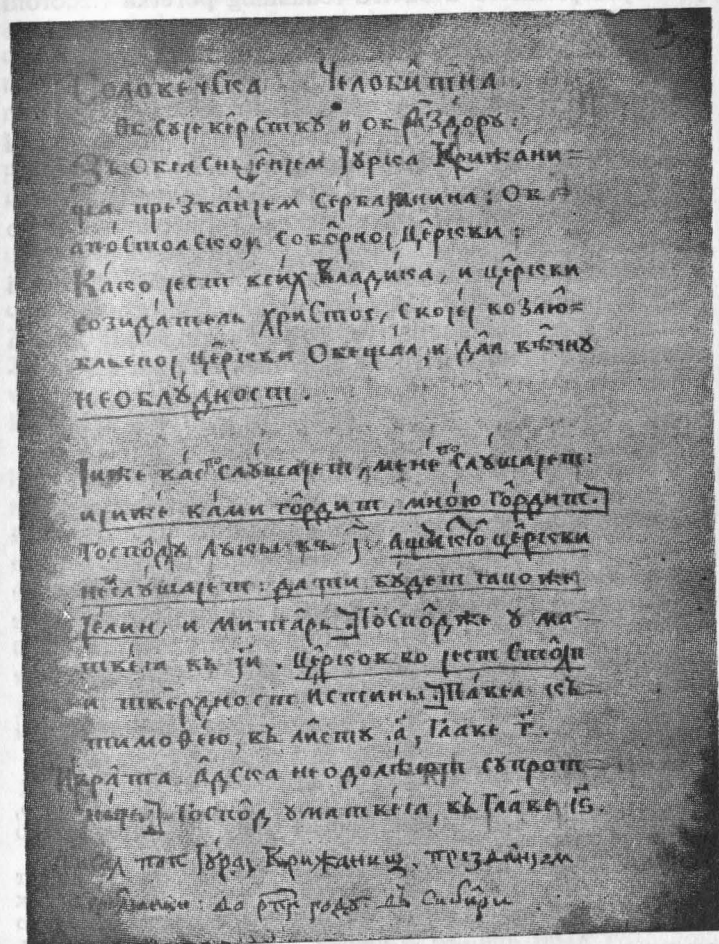 Соловечска Челобитна.
Об сујевѣрству и об раздору:
Зъ Објаснјенјем Јурка Крижани=
ща презванјем Сербљанина: Об
апостолской соборној церкви:
Како јест всих Владика, и церкви
созидатель христос, својеј возлю=
бльеној церкви Обещал, и дал вѣчну
необлудност.
Јиже вас послушајет, мене послушајет:
и јиже вами гордит, мною гордит.
Господ у Лукы въ ї. Аще кто церкви
не слушајет: да ти будет тако же
Јелин, и митарь. Господже у ма-
твеја въ иї. Церков во јест Столп
и твердност Истины. Павел къ
тимоѳею, въ листу .а, Главе г.
И врата адска неодолѣјут супрот
нејє. Господ у матвеја, въ Главе іѕ.
поп Јурај Крижанищ. презданјем
году въ Сибири